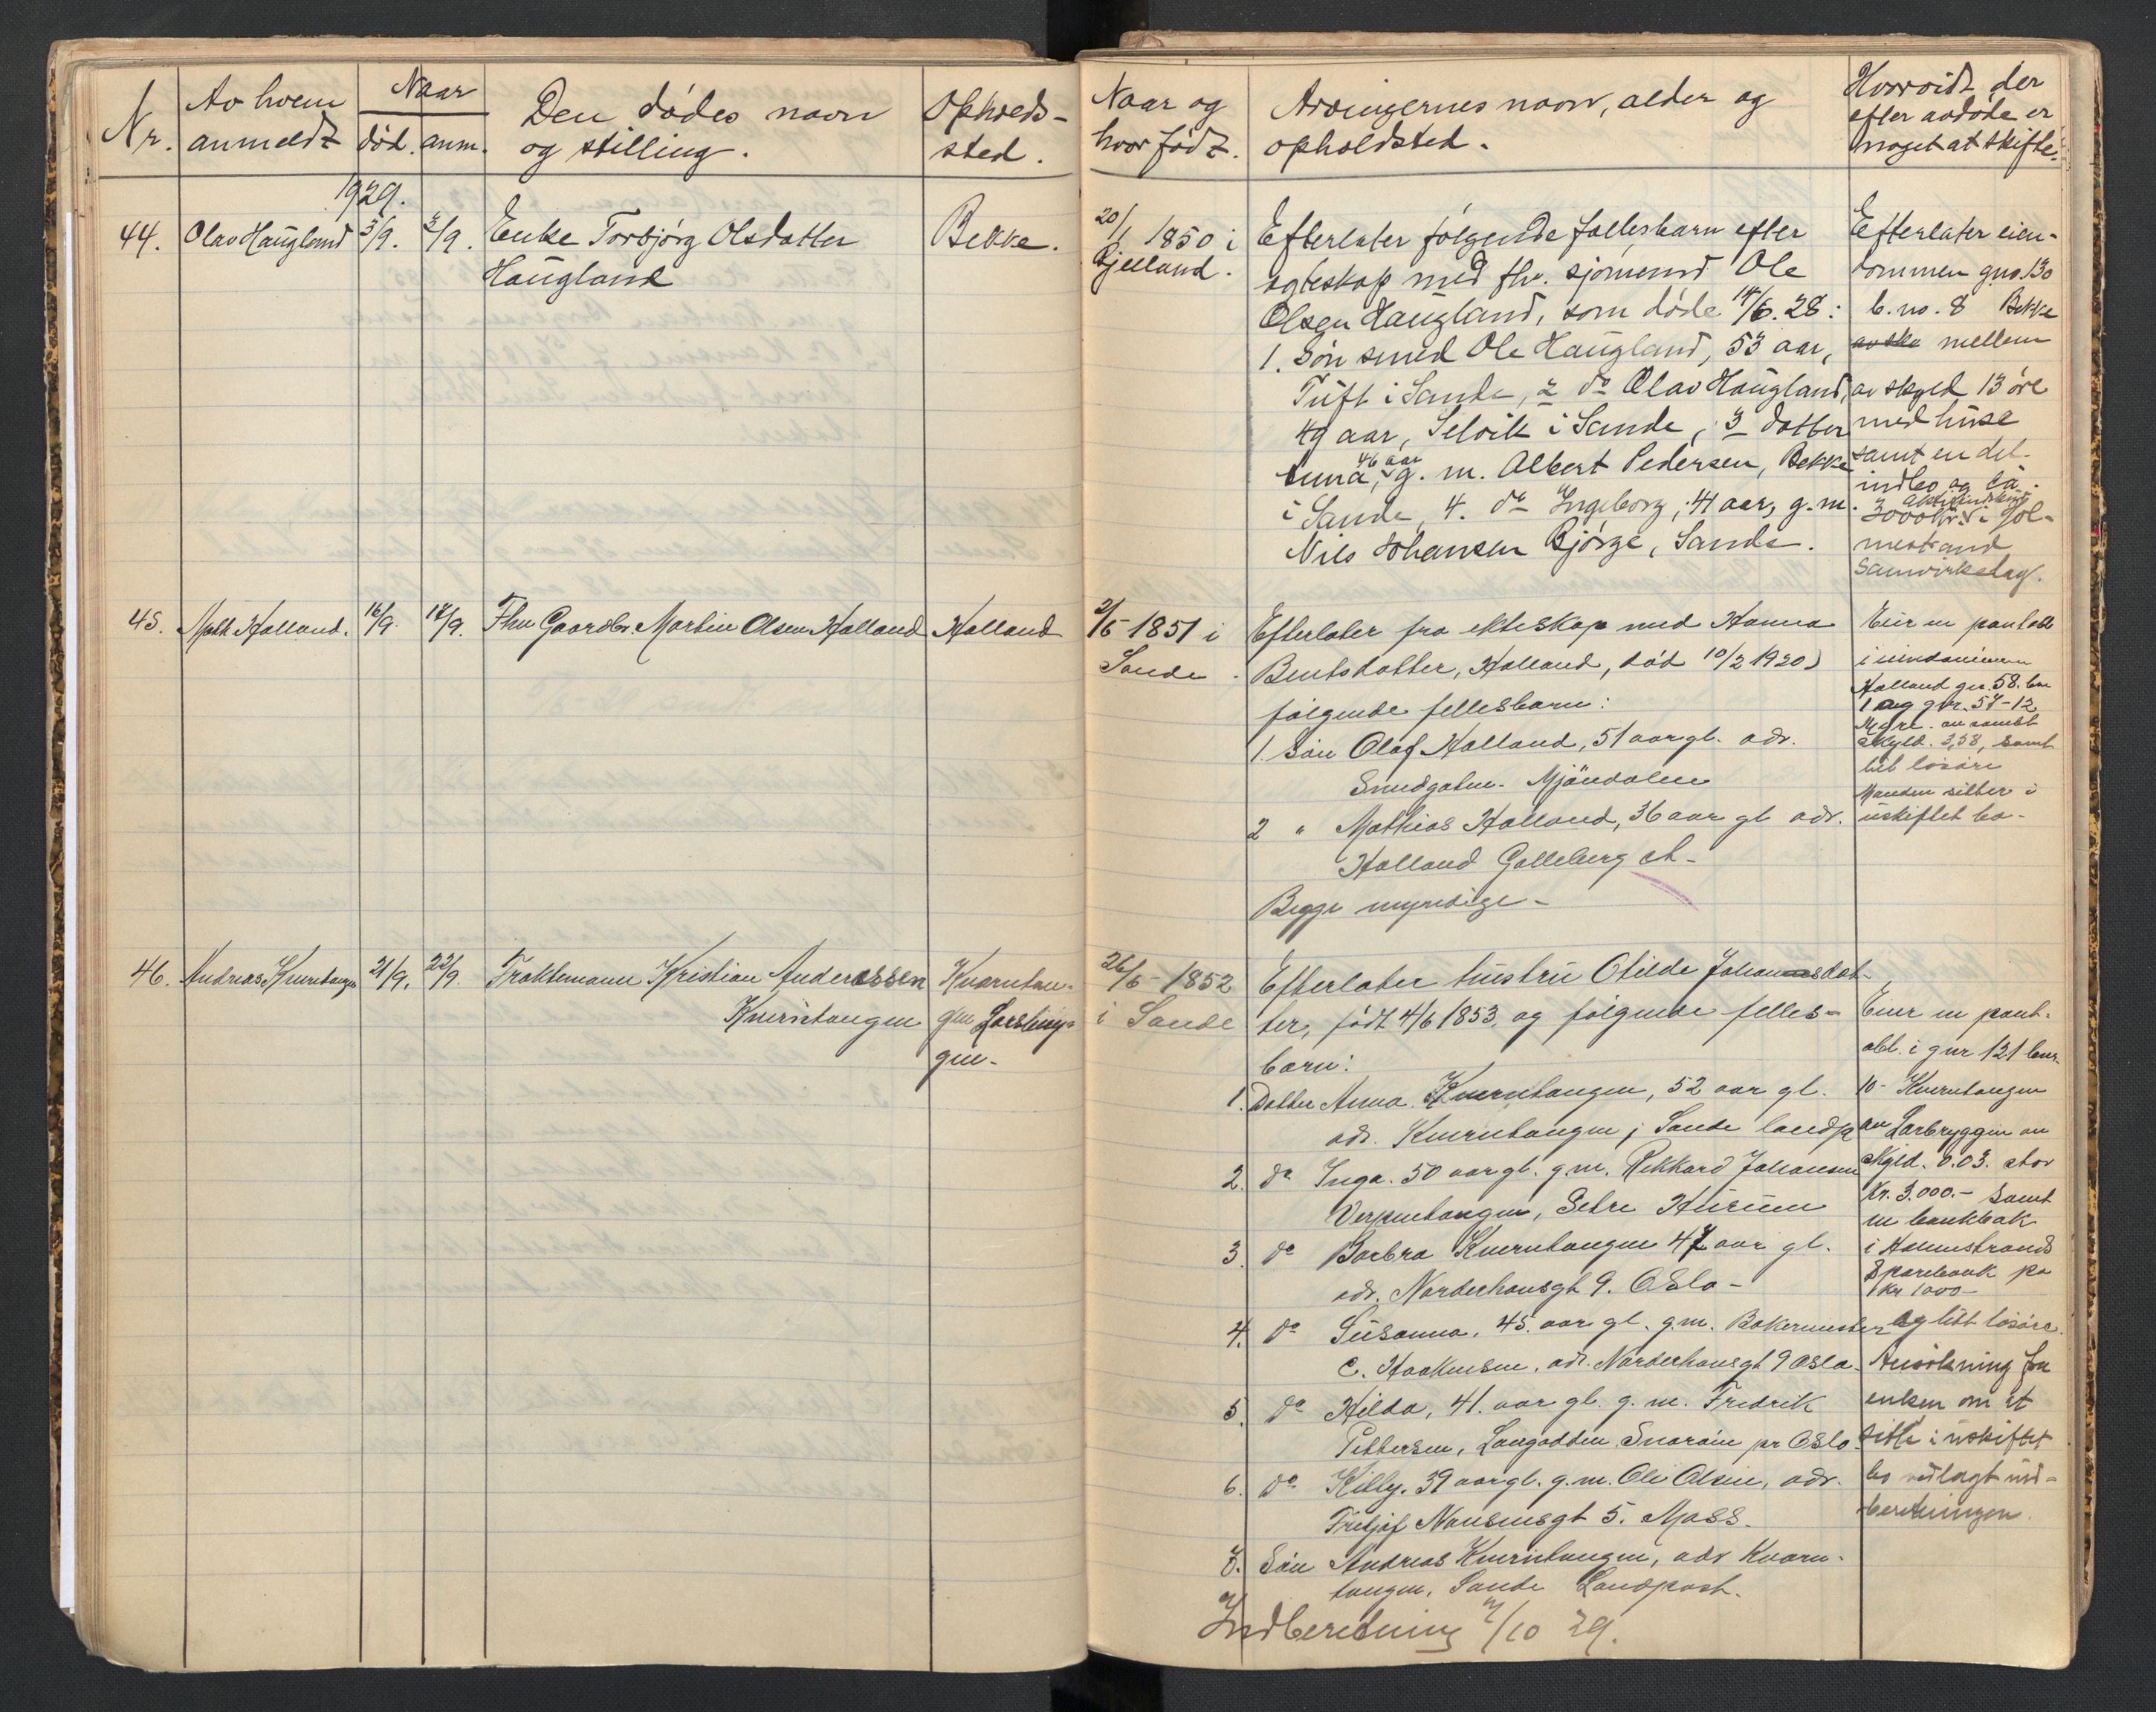 Nr. Av hvem anmeldt Naar død. anm. Den dødes navn og stilling. Opholds-sted. Naar og hvor født. Arvingernes navn, alder og opholdsted. Hvorvidt der efter avdøde er noget at skifte.
1929.
44. Olav Haugland 3/9. 3/9. Enke Torbjørg Olsdatter
Haugland
Bekke.
20/1 1850 i
Bjelland.
Efterlater følgende fællesbarn efter
egteskap med fhv. sjømand Ole
Olsen Haugland, som døde 14/6. 28:
1. Søn smed Ole Haugland, 53 aar,
Tuft i Sande, 2 do Olav Haugland,
49 aar, Selvik i Sande, 3 datter
Anna, 46 aar g. m. Albert Pedersen, Bekke
i Sande, 4. do Ingeborg, 41 aar, g. m.
Nils Johansen Bjørge, Sande.
Efterlater eien-
dommen gno. 130
b. no. 8 Bekke
mellem
av skyld 13 øre
med huse
samt en del
indbo og ca.
3000 kr. i Hol-
mestrand
Samvirkelag.
45. Math Holland. 16/9. 17/9. Fhv Gaardbr. Martin Olsen Holland Holland
2/5 1851 i
Sande.
Efterlater fra ekteskap med Hanna
Berntsdatter, Holland, død 10/2 1920)
følgende fellesbarn:
1. Søn Olaf Holland, 51 aar gl. adr.
Smedgaten. Mjöndalen
2 " Mathias Holland, 36 aar gl adr.
Holland Galleberg st-
Begge myndige -
Eier en pantobl
i eiendommen
Holland gnr. 58. bnr
1 og gnr. 57-12
av samlet
skyld. 3,58, samt
litt løsøre
Manden sitter i
uskiftet bo-
46. Andreas Kverntangen 21/9. 22/9. Fraktemann Kristian Anderassen
Kverntangen
Kvarntan-
gen Lersbryg-
gen-
26/6-1852
i Sande
Efterlater hustru Otilde Johannsdat-
ter, født 4/6 1853, og følgende felles-
barn:
1. Datter Anna Kverntangen, 52 aar gl.
adr. Kverntangen, Sande landp
2. do Inga. 50 aar gl. g.m. Rikkard Johansen
Verpentangen, Setre Hurum
3. do Barbra Kverntangen 47 aar gl.
adr. Norderhovsgt 9. Oslo-
4. do Susanna, 45. aar gl. g.m. Bakermester
C. Haakensen, adr. Norderhovsgt 9 Oslo.
5. do Hilda, 41. aar gl. g. m. Fredrik
Pettersen, Langodden Snarøin pr Oslo
6. do Killy. 39 aar gl. g.m. Ole Olsen, adr.
Fritjof Nansensgt 5. Moss.
7. Søn Andreas Kverntangen, adr Kvarn-
tangen, Sande Landpost.
Eier en pant.
obl. i gnr 121 bnr.
10- Kverntangen
av Larbryggen av
skyld. 0.03. stor
Kr. 3.000.- samt
en bankbok
i Holmestrands
Sparebank pa
Kr 1000-
og litt løsøre.
Ansökning fra
enken om at
sitte i uskiftet
bo vedlagt ind-
beretningen.
Indberetning 7/10 29.